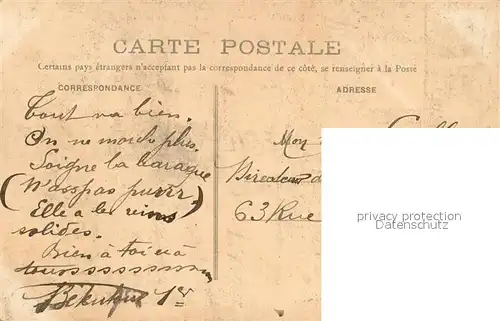 CARTE POSTALE
Certains pays étrangers n'acceptant pas la correspondance de ce côté, se renseigner à la Poste
CORRESPONDANCE
ADRESSE
Tout va bien.
On ne marche plus.
Soigne la baraque
(N'ass pas purrr)
Elle a les reins
solides.
Bien à toi et à
toussssssssss
1er
Mon
Directeur d
63 Rue
privacy protection
www.ansichtskarten-center.de